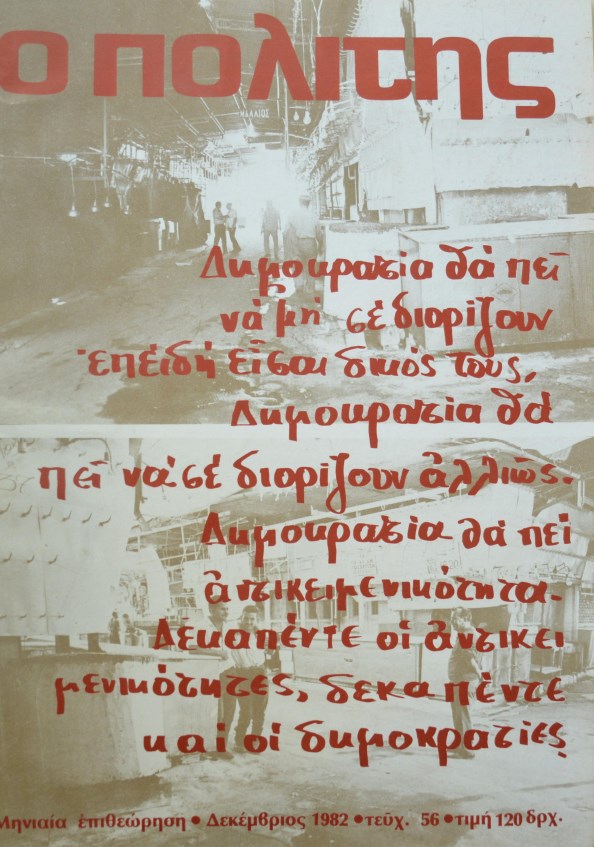 ο πολιτης
ΜΑΛΛΙΟΣ
Δημοκρατία θά πεῖ
νά μή σέ διορίζουν
ἐπειδή εἶσαι δικός τους,
Δημοκρατία θά
πεῖ νά σέ διορίζουν ἀλλιῶς.
Δημοκρατία θά πεῖ
ἀντικειμενικότητα.
Δεκαπέντε οἱ ἀντικει
μενικότητες, δεκαπέντε
καί οἱ δημοκρατίες
Μηνιαία ἐπιθεώρηση • Δεκέμβριος 1982 • τεῦχ. 56 • τιμή 120 δρχ.